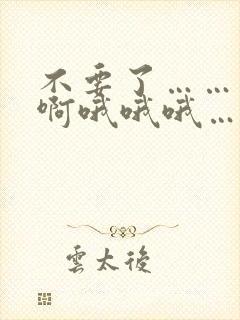 不要了……
啊哦哦哦…
雲太後